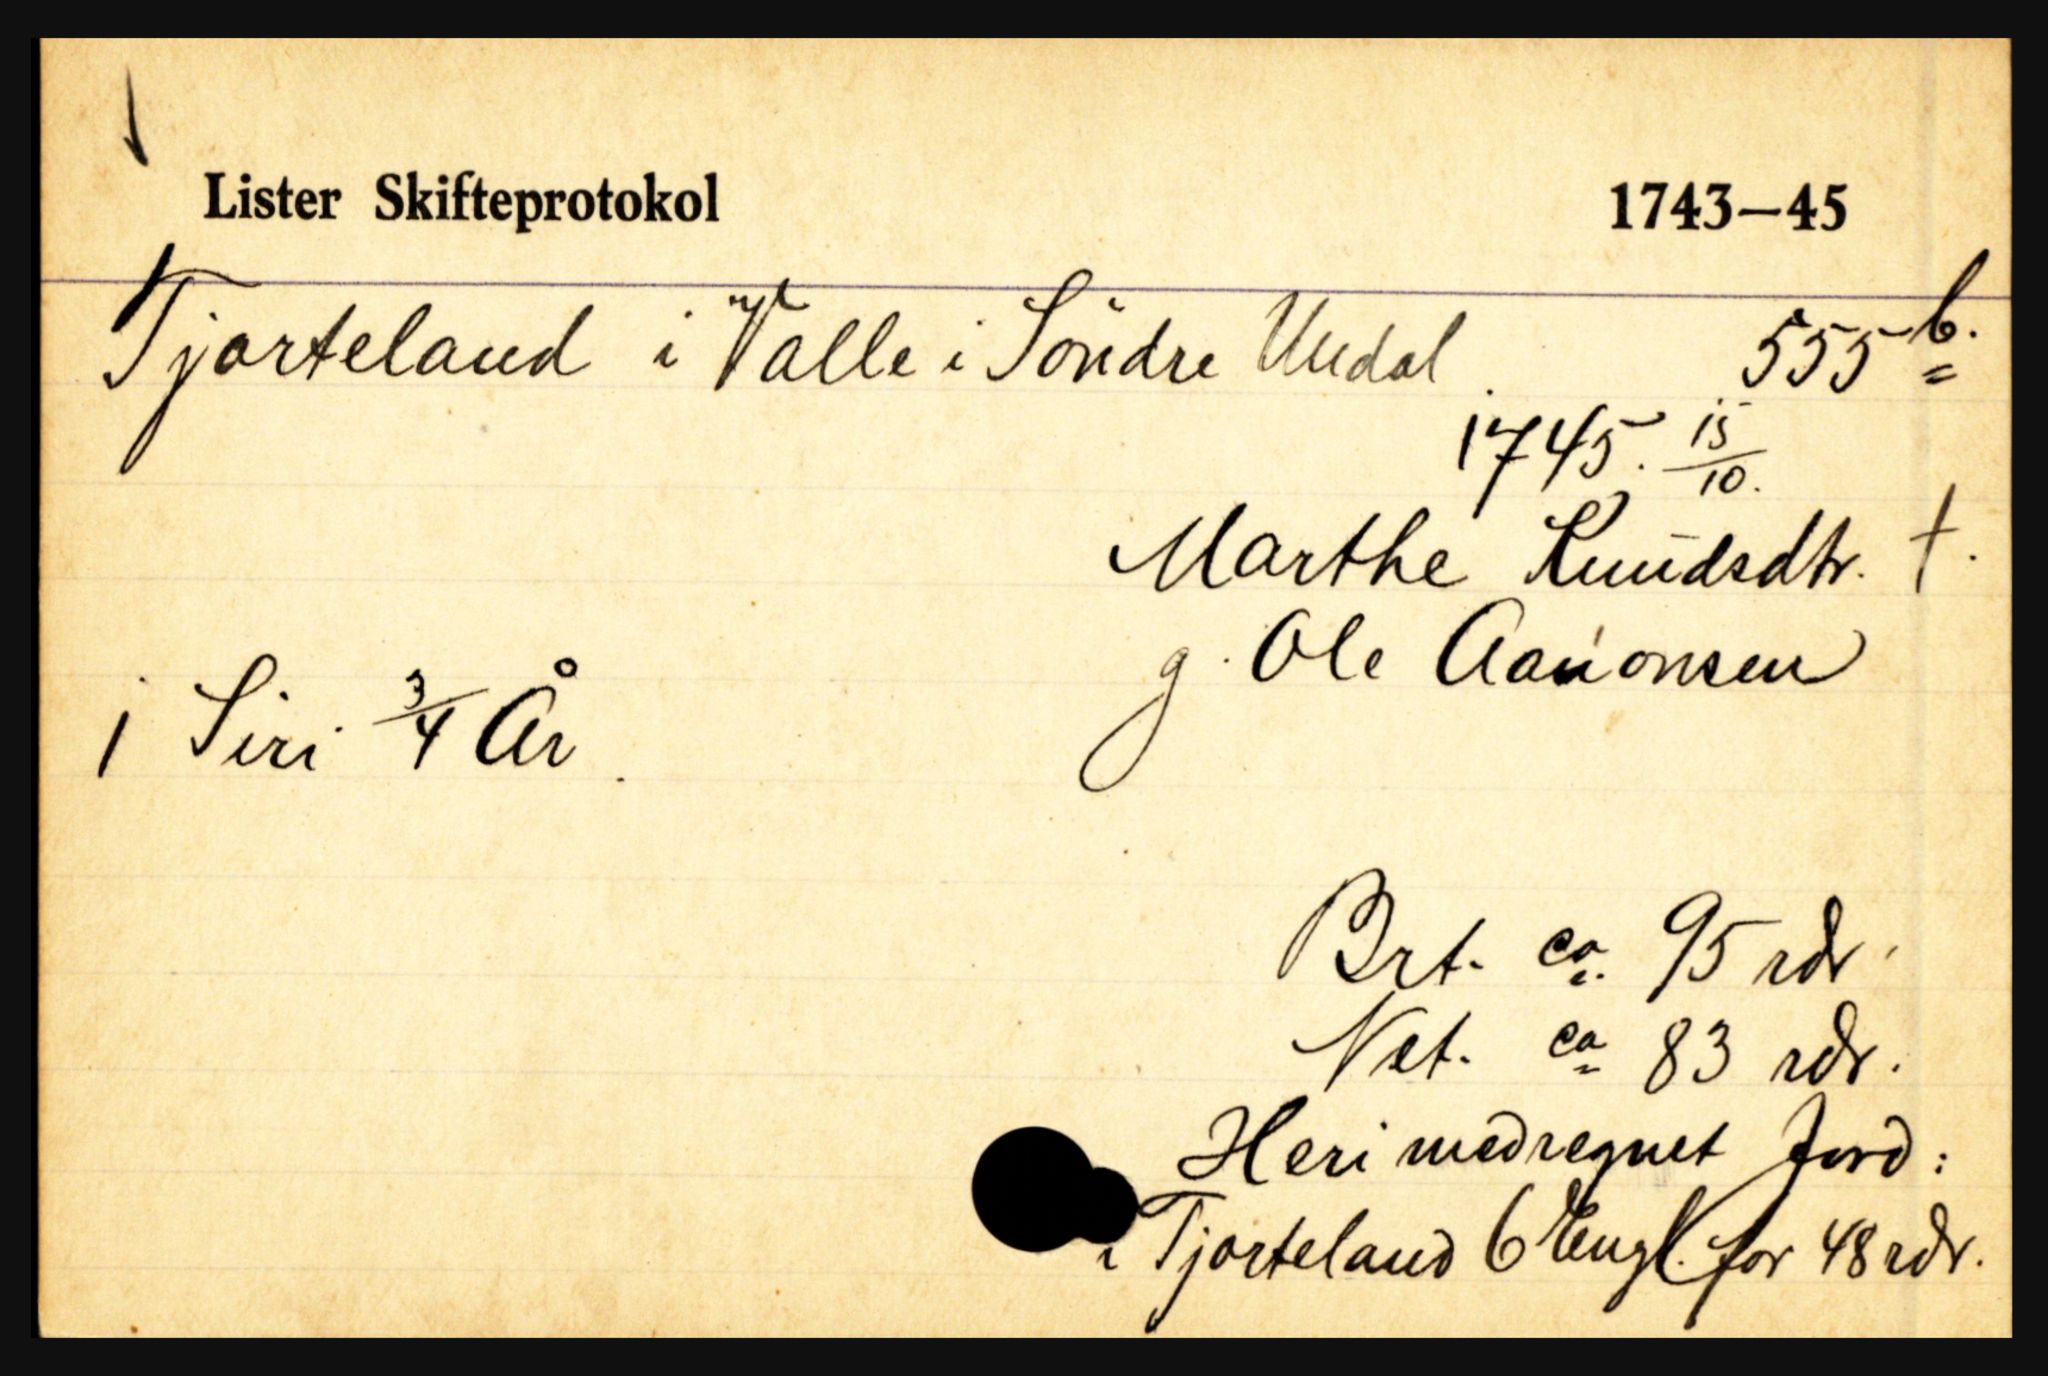 Lister Skifteprotokol 1743–45
Tjorteland i Valle i Söndre Undal. 555 b.
1745. 15/10.
Marthe Knudsdtr. †.
g. Ole Aanonsen
1 Siri 3/4 År.
Brt. ca. 95 rdr.
Net. ca 83 rdr.
Heri medregnet Jord:
i Tjorteland 6 Engl. for 48 rdr.